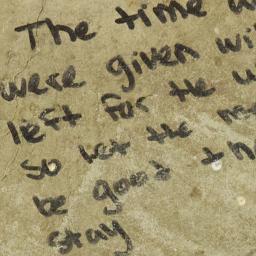 The time
were given
left for the
so let the
be good
stay